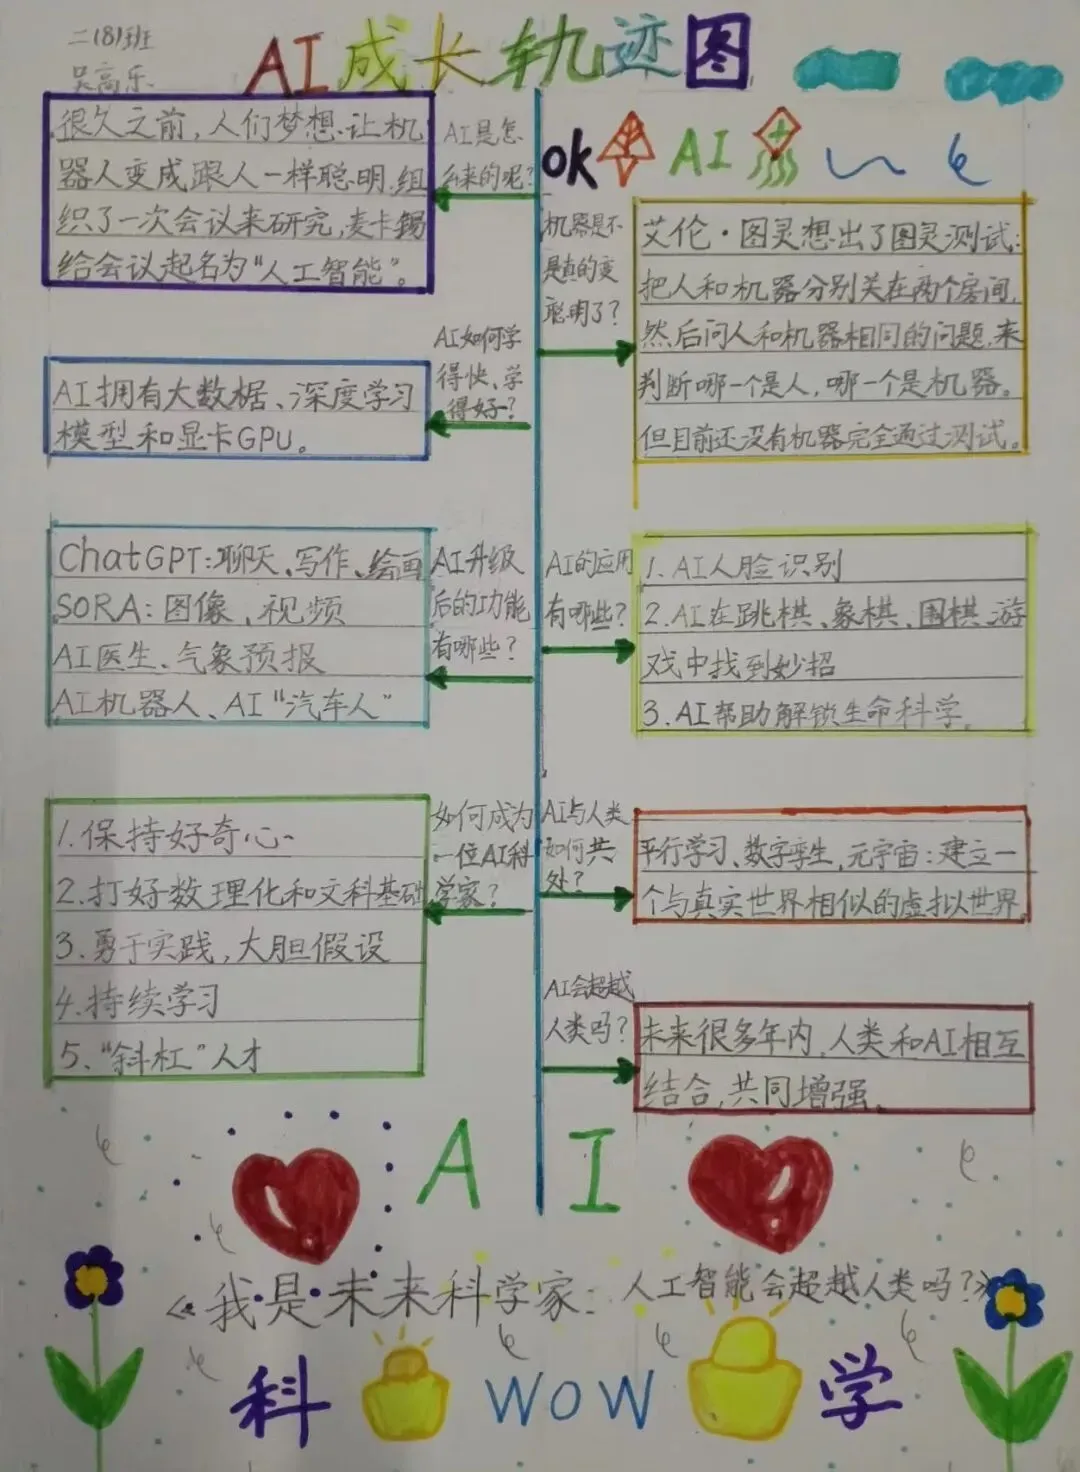 二(8)班
吴高乐
AI成长轨迹图
AI是怎
么来的呢?
很久之前,人们梦想让机
器人变成跟人一样聪明,组
织了一次会议来研究,麦卡锡
给会议起名为“人工智能”。
ok AI
机器是不
是真的变
聪明了?
艾伦·图灵想出了图灵测试:
把人和机器分别关在两个房间,
然后问人和机器相同的问题,来
判断哪一个是人,哪一个是机器。
但目前还没有机器完全通过测试。
AI如何学
得快、学
得好?
AI拥有大数据、深度学习
模型和显卡GPU。
AI升级
后的功能
有哪些?
ChatGPT:聊天、写作、绘画
SORA:图像、视频
AI医生、气象预报
AI机器人、AI“汽车人”
AI的应用
有哪些?
1.AI人脸识别
2.AI在跳棋、象棋、围棋游
戏中找到妙招
3.AI帮助解锁生命科学。
如何成为
一位AI科
学家?
1.保持好奇心
2.打好数理化和文科基础
3.勇于实践,大胆假设
4.持续学习
5.“斜杠”人才
AI与人类
如何共
处?
平行学习、数字孪生,元宇宙:建立一
个与真实世界相似的虚拟世界
AI会超越
人类吗?
未来很多年内,人类和AI相互
结合,共同增强。
A I
《我是未来科学家:人工智能会超越人类吗?》
科 WOW 学